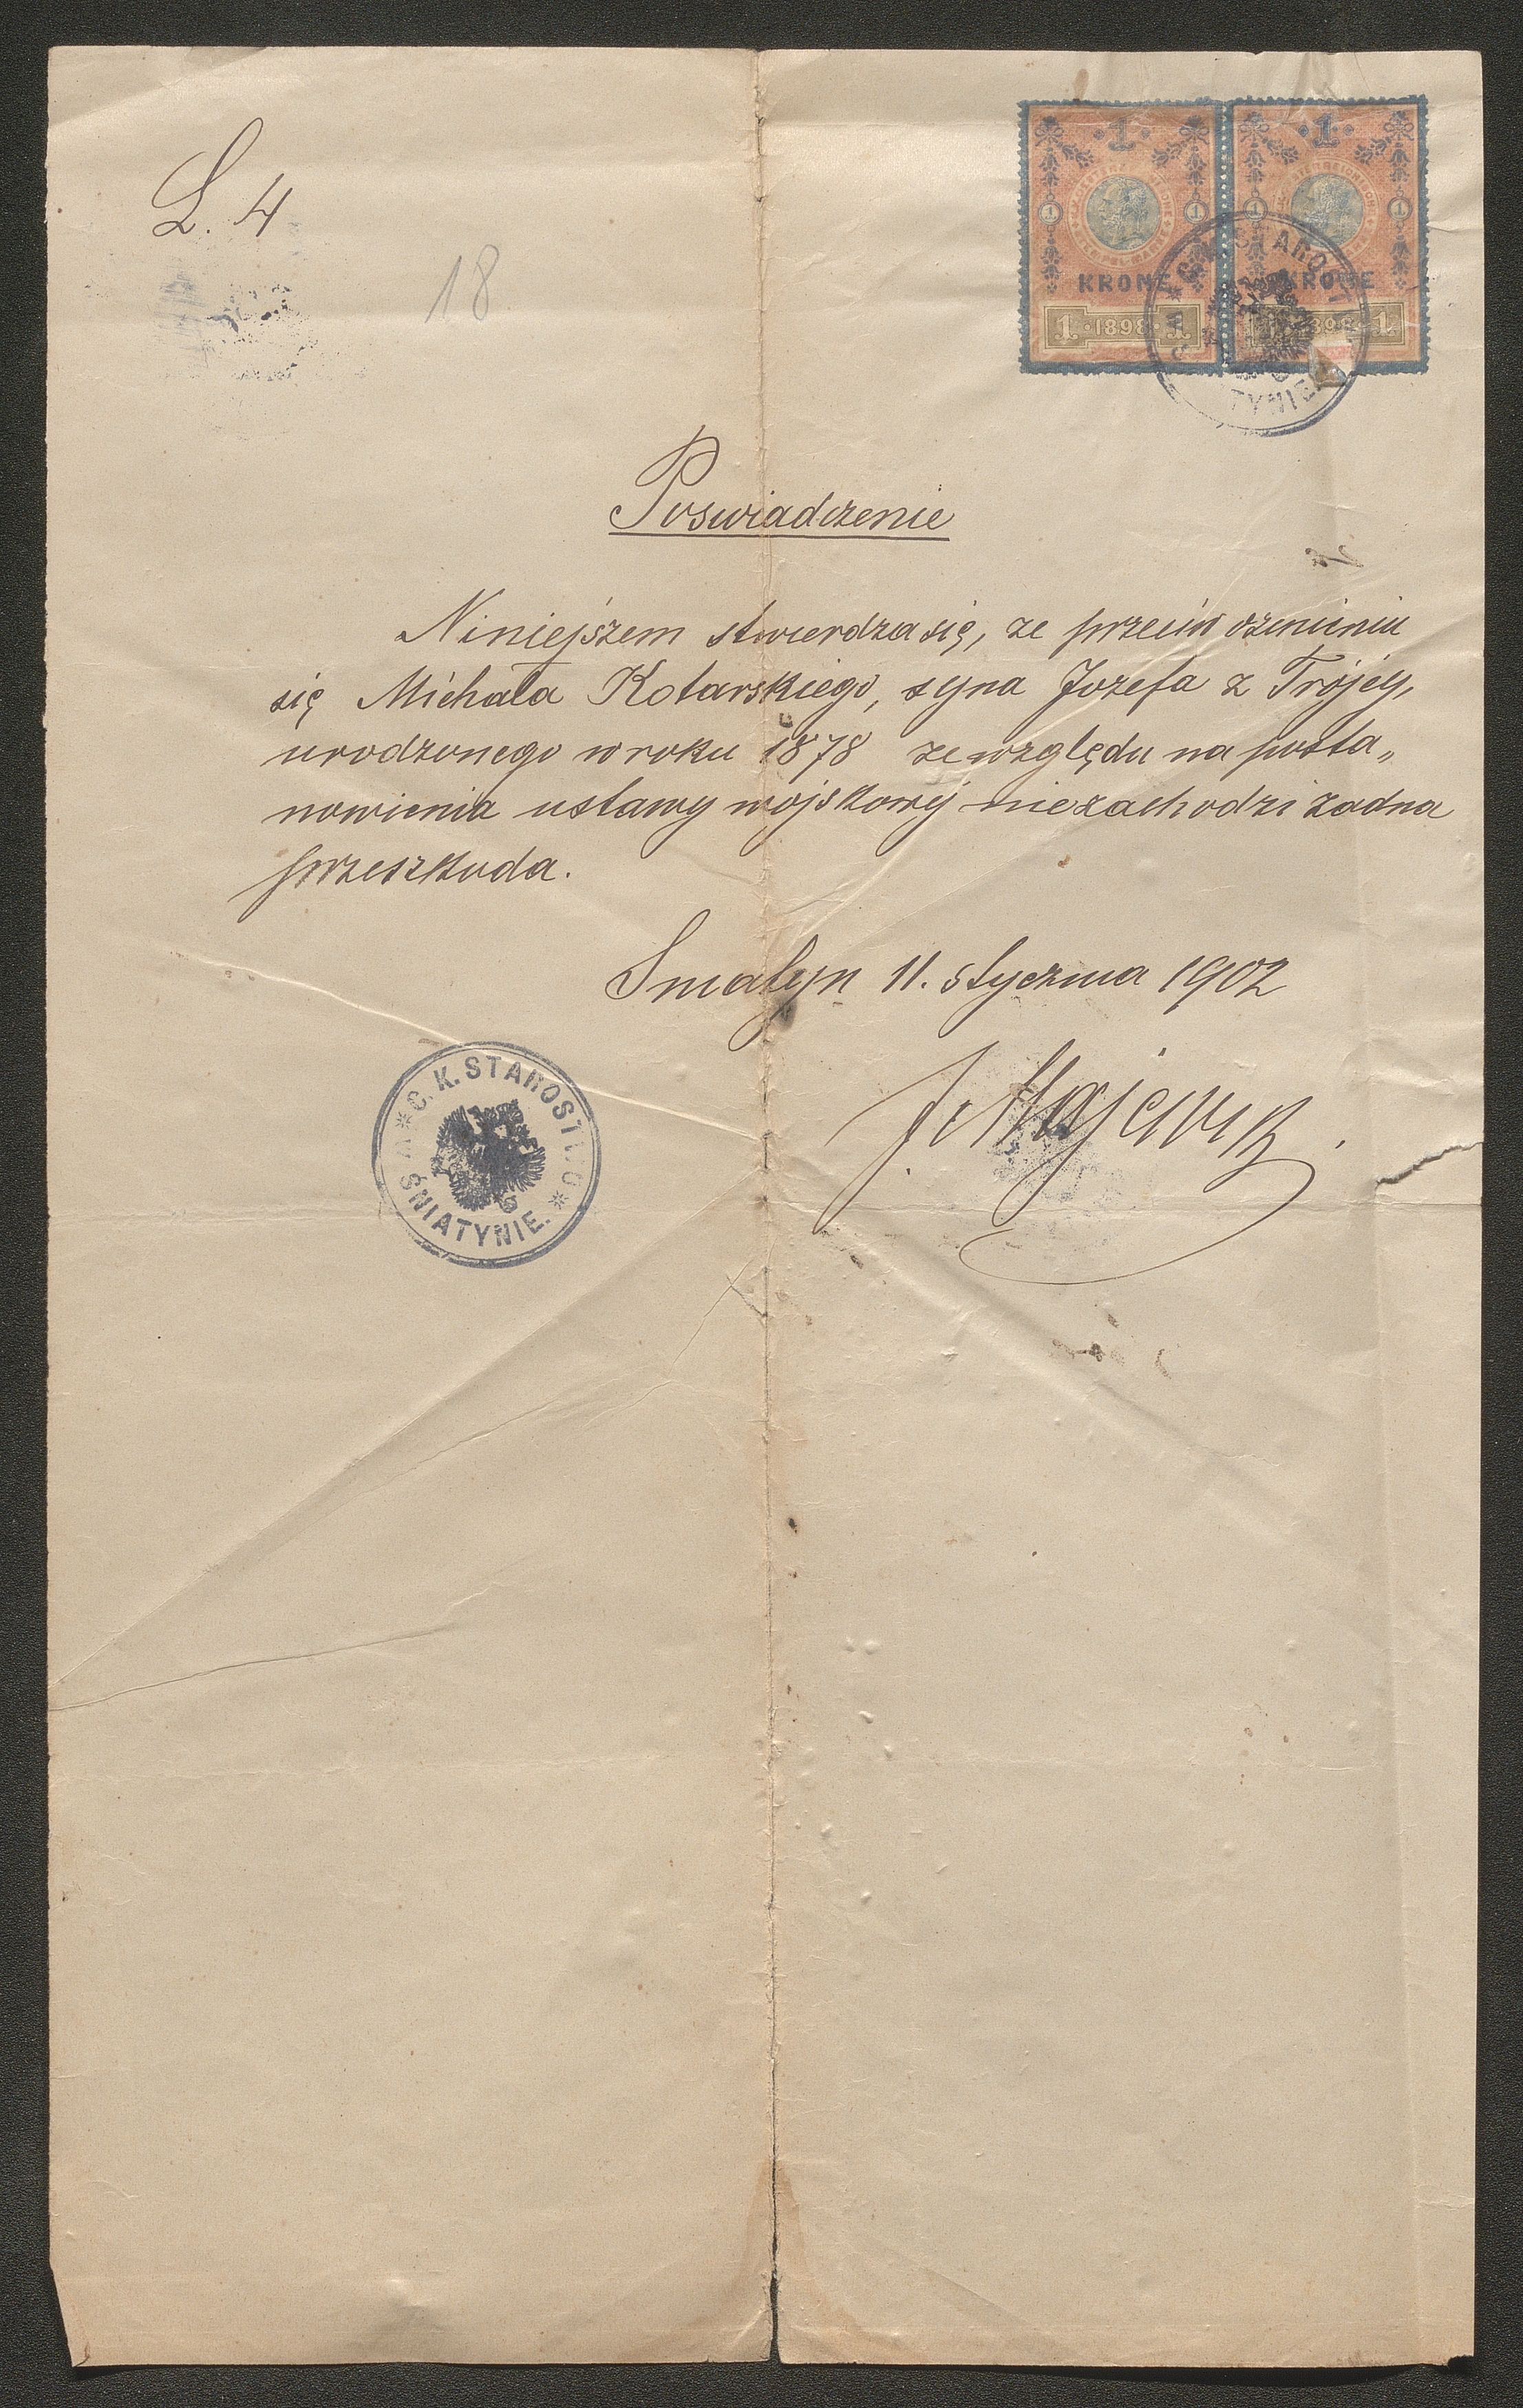 L. 4
18
1
1
KRONE
KRONE
1 · 1898 · 1
1898 · 1
Poswiadczenie
Niniejszem stwierdza się, ze przeciw ozenieniu
się Michała Kotarskiego, syna Jozefa z Trojcy,
urodzonego w roku 1878 ze względu na posta„
nowienia ustawy wojskowej niezachodzi zadna
przeszkoda.
Sniatyn 11. stycznia 1902
C. K. STAROSTWO
W ŚNIATYNIE.